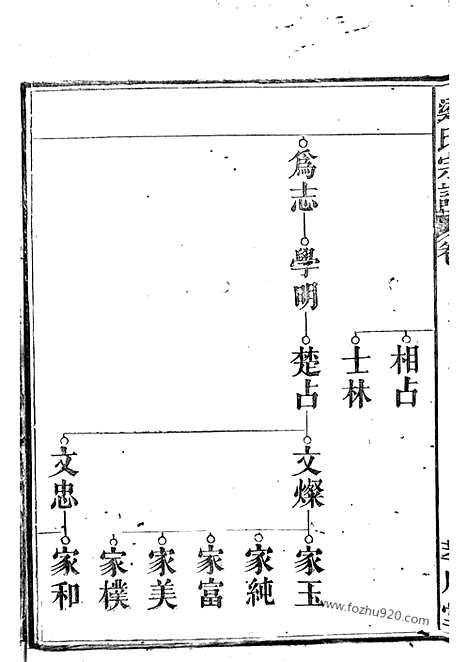 氏宗譜卷
爲志
學明
相占
士林
楚占
文燦
文忠
家玉
家純
家富
家美
家樸
家和
www.fozhu920.com